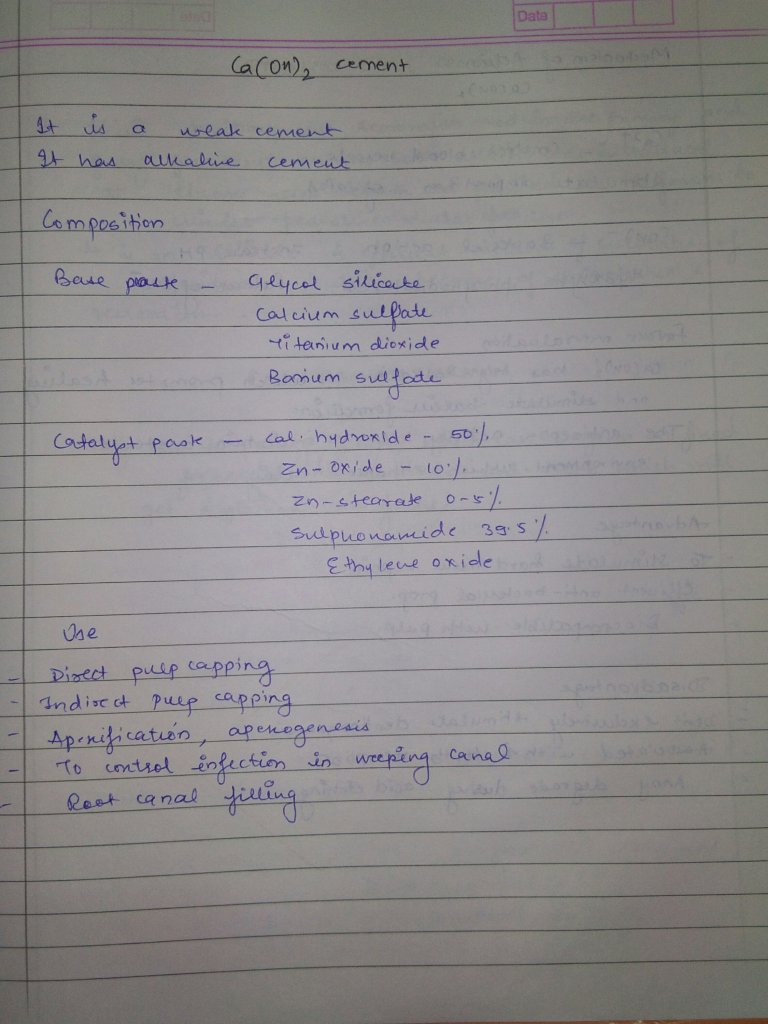 Data
Ca(OH)2 cement
It is a weak cement
It has alkaline cement
Composition
Base paste - Glycol silicate
Calcium sulfate
Titanium dioxide
Barium sulfate
Catalyst paste - Cal. hydroxide - 50%.
Zn-Oxide - 10%.
Zn-stearate 0-5%.
Sulphonamide 39.5%.
Ethylene oxide
Use
- Direct pulp capping
- Indirect pulp capping
- Apexification, apexogenesis
- To control infection in weeping canal
- Root canal filling